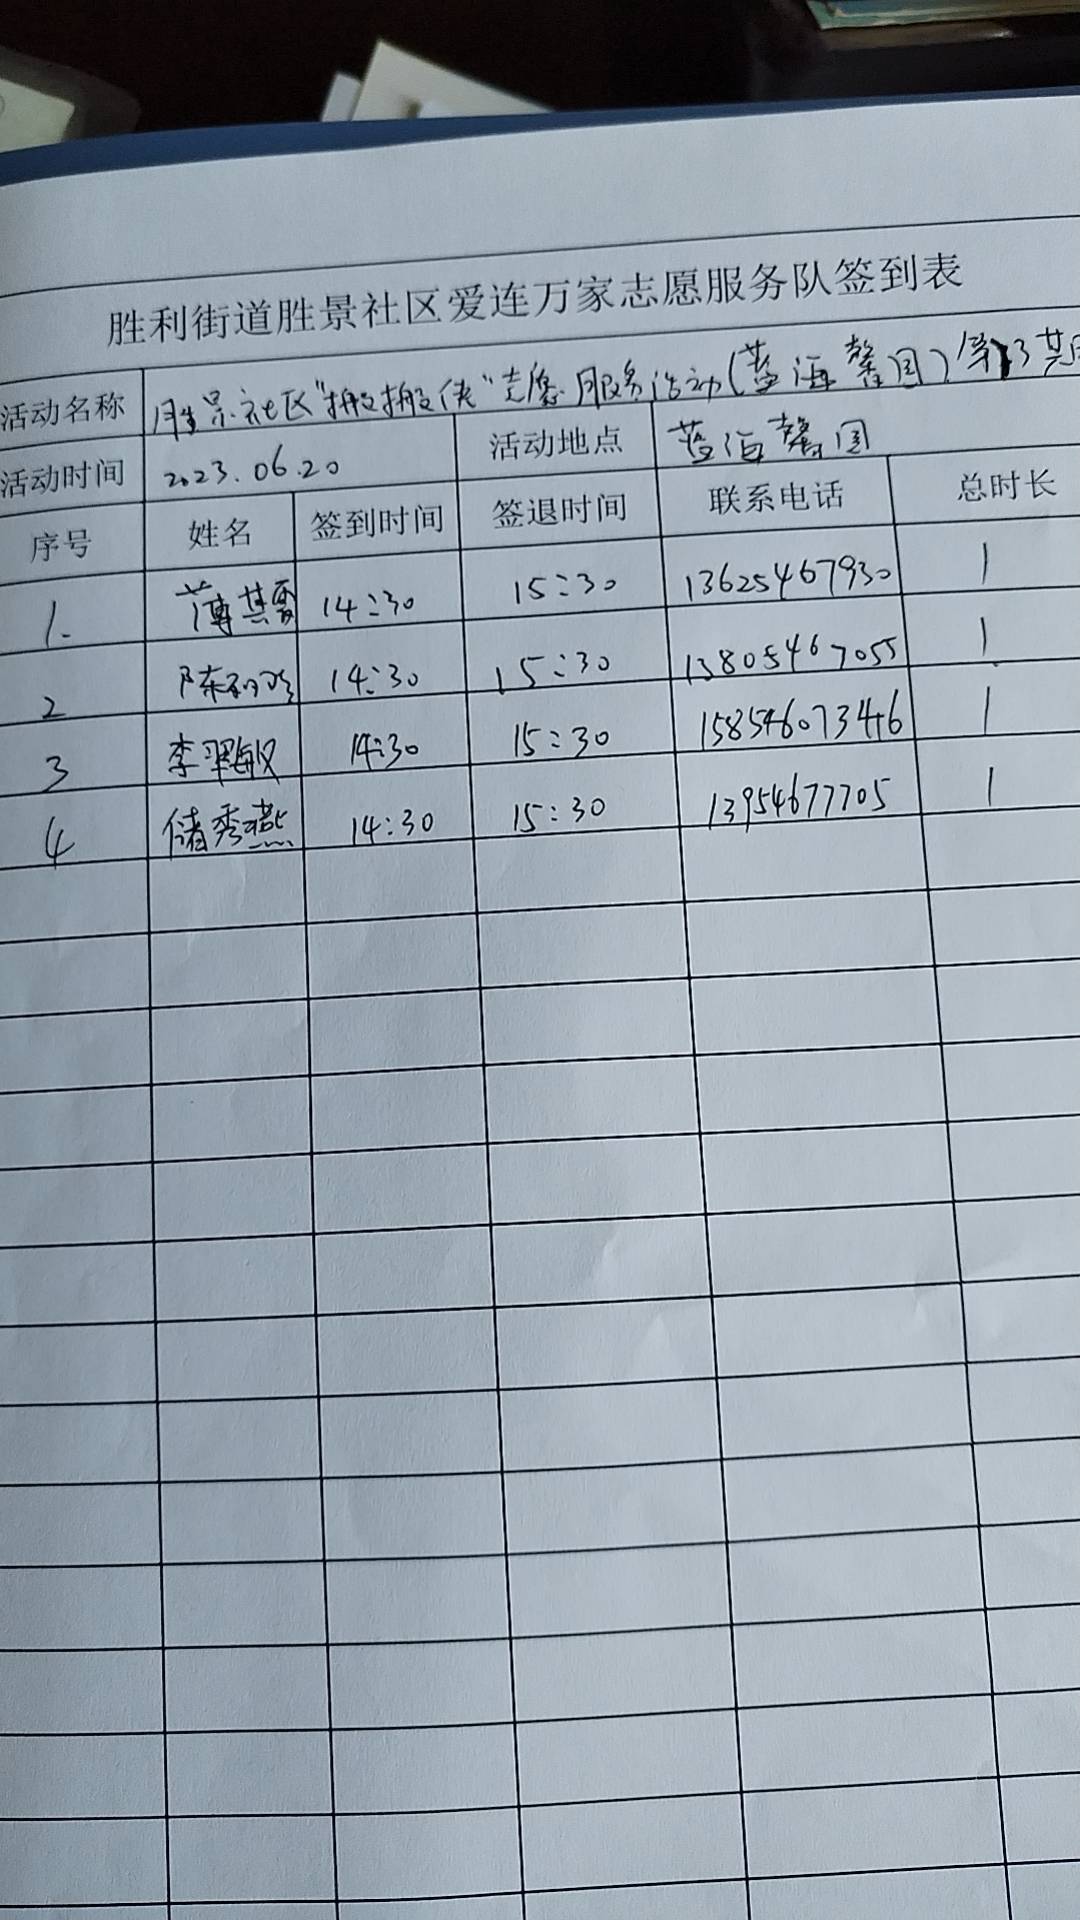 胜利街道胜景社区爱连万家志愿服务队签到表
活动名称 胜景社区"搬搬侠"志愿服务活动(蓝海馨园)第13期
活动时间 2023.06.20 活动地点 蓝海馨园
序号 姓名 签到时间 签退时间 联系电话 总时长
1. 薄其雪 14:30 15:30 13625467930 1
2 陈 14:30 15:30 13805467055 1
3 李翠敏 14:30 15:30 15854607346 1
4 储秀燕 14:30 15:30 13954677705 1